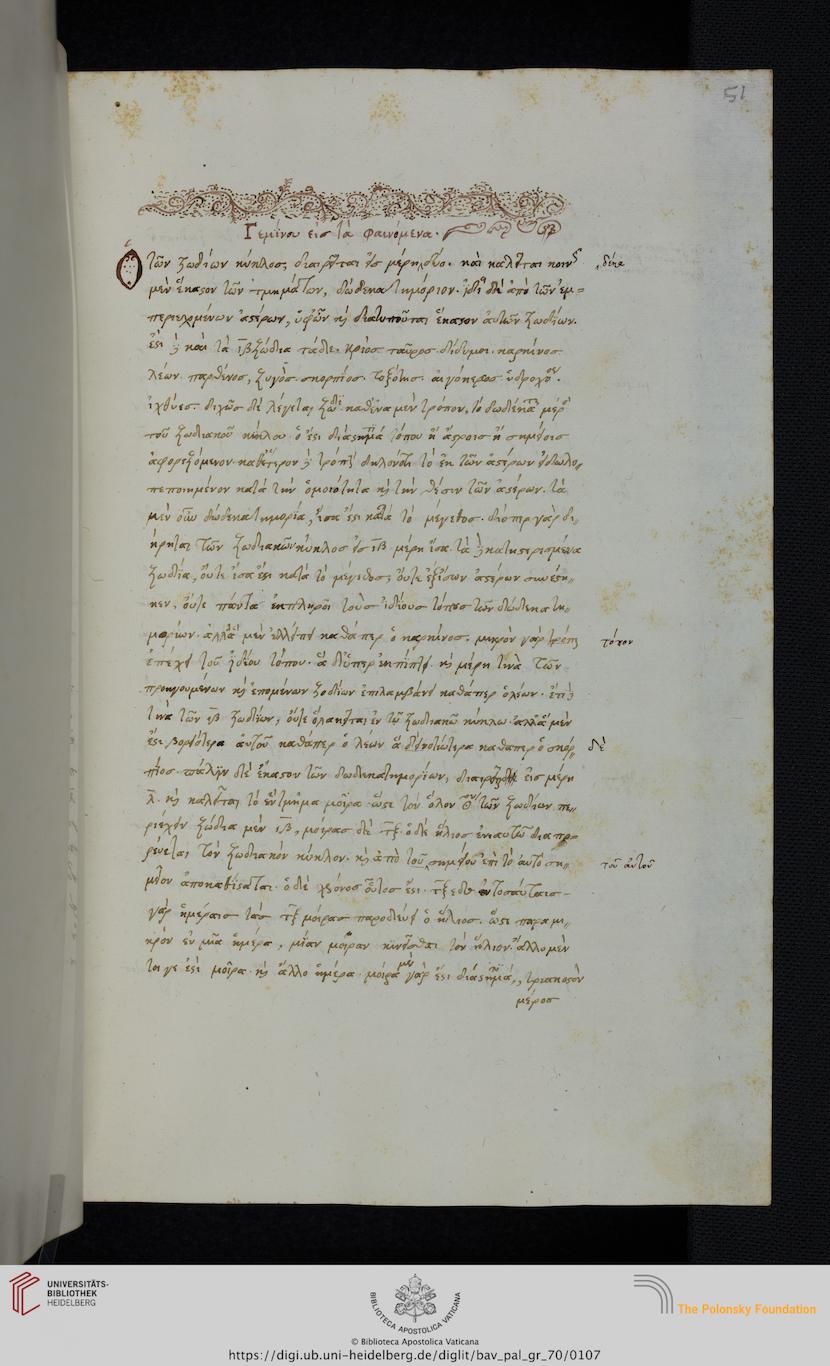 51
Γεμίνου εἰς τὰ φαινόμενα.
Ὁ τῶν ζωδίων κύκλος, διαιρεῖται εἰς μέρη δύο. καὶ καλεῖται κοινῶς
δέκα
μὲν ἕκαστον τῶν τμημάτων, δωδεκατημόριον. ἰδίᾳ δὲ ἀπὸ τῶν ἐμ-
περιεχομένων ἀστέρων, ὑφ' ὧν καὶ διατυποῦται ἕκαστον αὐτῶν ζωδίων.
ἔστι δὲ καὶ τὰ ιβ ζώδια τάδε. κριὸς ταῦρος. δίδυμοι. καρκίνος
λέων. παρθένος, ζυγὸς. σκορπίος. τοξότης. αἰγόκερος ὑδροχόος.
ἰχθύες. διχῶς δὲ λέγεται ζώδιον καθ' ἕνα μὲν τρόπον, τὸ δωδέκατον μέρος
τοῦ ζωδιακοῦ κύκλου. ὅ ἐστι διάστημά τόπου ἢ ἄστροις ἢ σημείοις
ἀφοριζόμενον. καθ' ἕτερον δὲ τρόπον δηλονότι τὸ ἐκ τῶν ἀστέρων εἰδωλο-
πεποιημένον κατὰ τὴν ὁμοιότητα καὶ τὴν θέσιν τῶν ἀστέρων. τὰ
μὲν οὖν δωδεκατημορία, ἴσα ἐστὶ κατὰ τὸ μέγεθος. διόπερ γὰρ δι-
ήρηται τῶν ζωδιακῶν κύκλος εἰς ιβ μέρη ἴσα. τὰ δὲ κατηστερισμένα
ζωδία, οὔτε ἴσα ἐστὶ κατὰ τὸ μέγεθος, οὔτε ἐξ ἴσων ἀστέρων συνέστη-
κεν, οὔτε πάντα ἐκπληροῖ τοὺς ἰδίους τόπους τῶν δωδεκατη-
μορίων. ἀλλὰ ἃ μὲν ἐλλείπει καθάπερ ὁ καρκίνος. μικρὸν γὰρ τρόπον
τόπον
ἐπέχει τοῦ ἰδίου τόπου. ἃ δὲ ὑπερεκπίπτει. καὶ μέρη τινὰ τῶν
προηγουμένων καὶ ἑπομένων ζοδίων ἐπιλαμβάνει καθάπερ ὁ λέων. ἔτι δὲ
τινὰ τῶν ιβ ζωδίων, οὔτε ὅλα κεῖται ἐν τῷ ζωδιακῷ κύκλω. ἀλλὰ ἃ μὲν
ἐστι βορειότερα αὐτοῦ καθάπερ ὁ λέων ἃ δὲ νοτιώτερα καθαπερ ὁ σκορ-
δὲ
πίος. πάλιν δὲ ἕκαστον τῶν δωδεκατημορίων, διαιρεῖται εἰς μέρη
λ. καὶ καλεῖται τὸ ἓν τμῆμα μοῖρα. ὥστε τὸν ὅλον τῶν ζωδίων πε-
ριέχειν ζώδια μὲν ιβ, μοίρας δὲ τξ. ὁ δὲ ἥλιος ἐνιαυτῷ διαπο-
ρεύεται τὸν ζωδιακὸν κύκλον. καὶ ἀπὸ τοῦ σημείου ἐπὶ τὸ αὐτὸ ση-
τοῦ αὐτοῦ
μεῖον ἀποκαθίσταται. ὁ δὲ χρόνος οὗτος ἐστι. τξε δʹ ἐν τοσαύταις
γὰρ ἡμέραις τὰς τξ μοίρας παροδεύει ὁ ἥλιος. ὥστε παρα μι-
κρὸν ἐν μιᾷ ἡμέρᾳ, μίαν μοῖραν κινεῖσθαι τὸν ἥλιον. ἄλλο μὲν
τοι γε ἐστὶ μοῖρα. καὶ ἄλλο ἡμέρα. μοίρα μὲν γὰρ ἐστι διάστημά, τριακοστὸν
μέρος
UNIVERSITÄTS-
BIBLIOTHEK
HEIDELBERG
BIBLIOTECA APOSTOLICA VATICANA
The Polonsky Foundation
© Biblioteca Apostolica Vaticana
https://digi.ub.uni-heidelberg.de/diglit/bav_pal_gr_70/0107